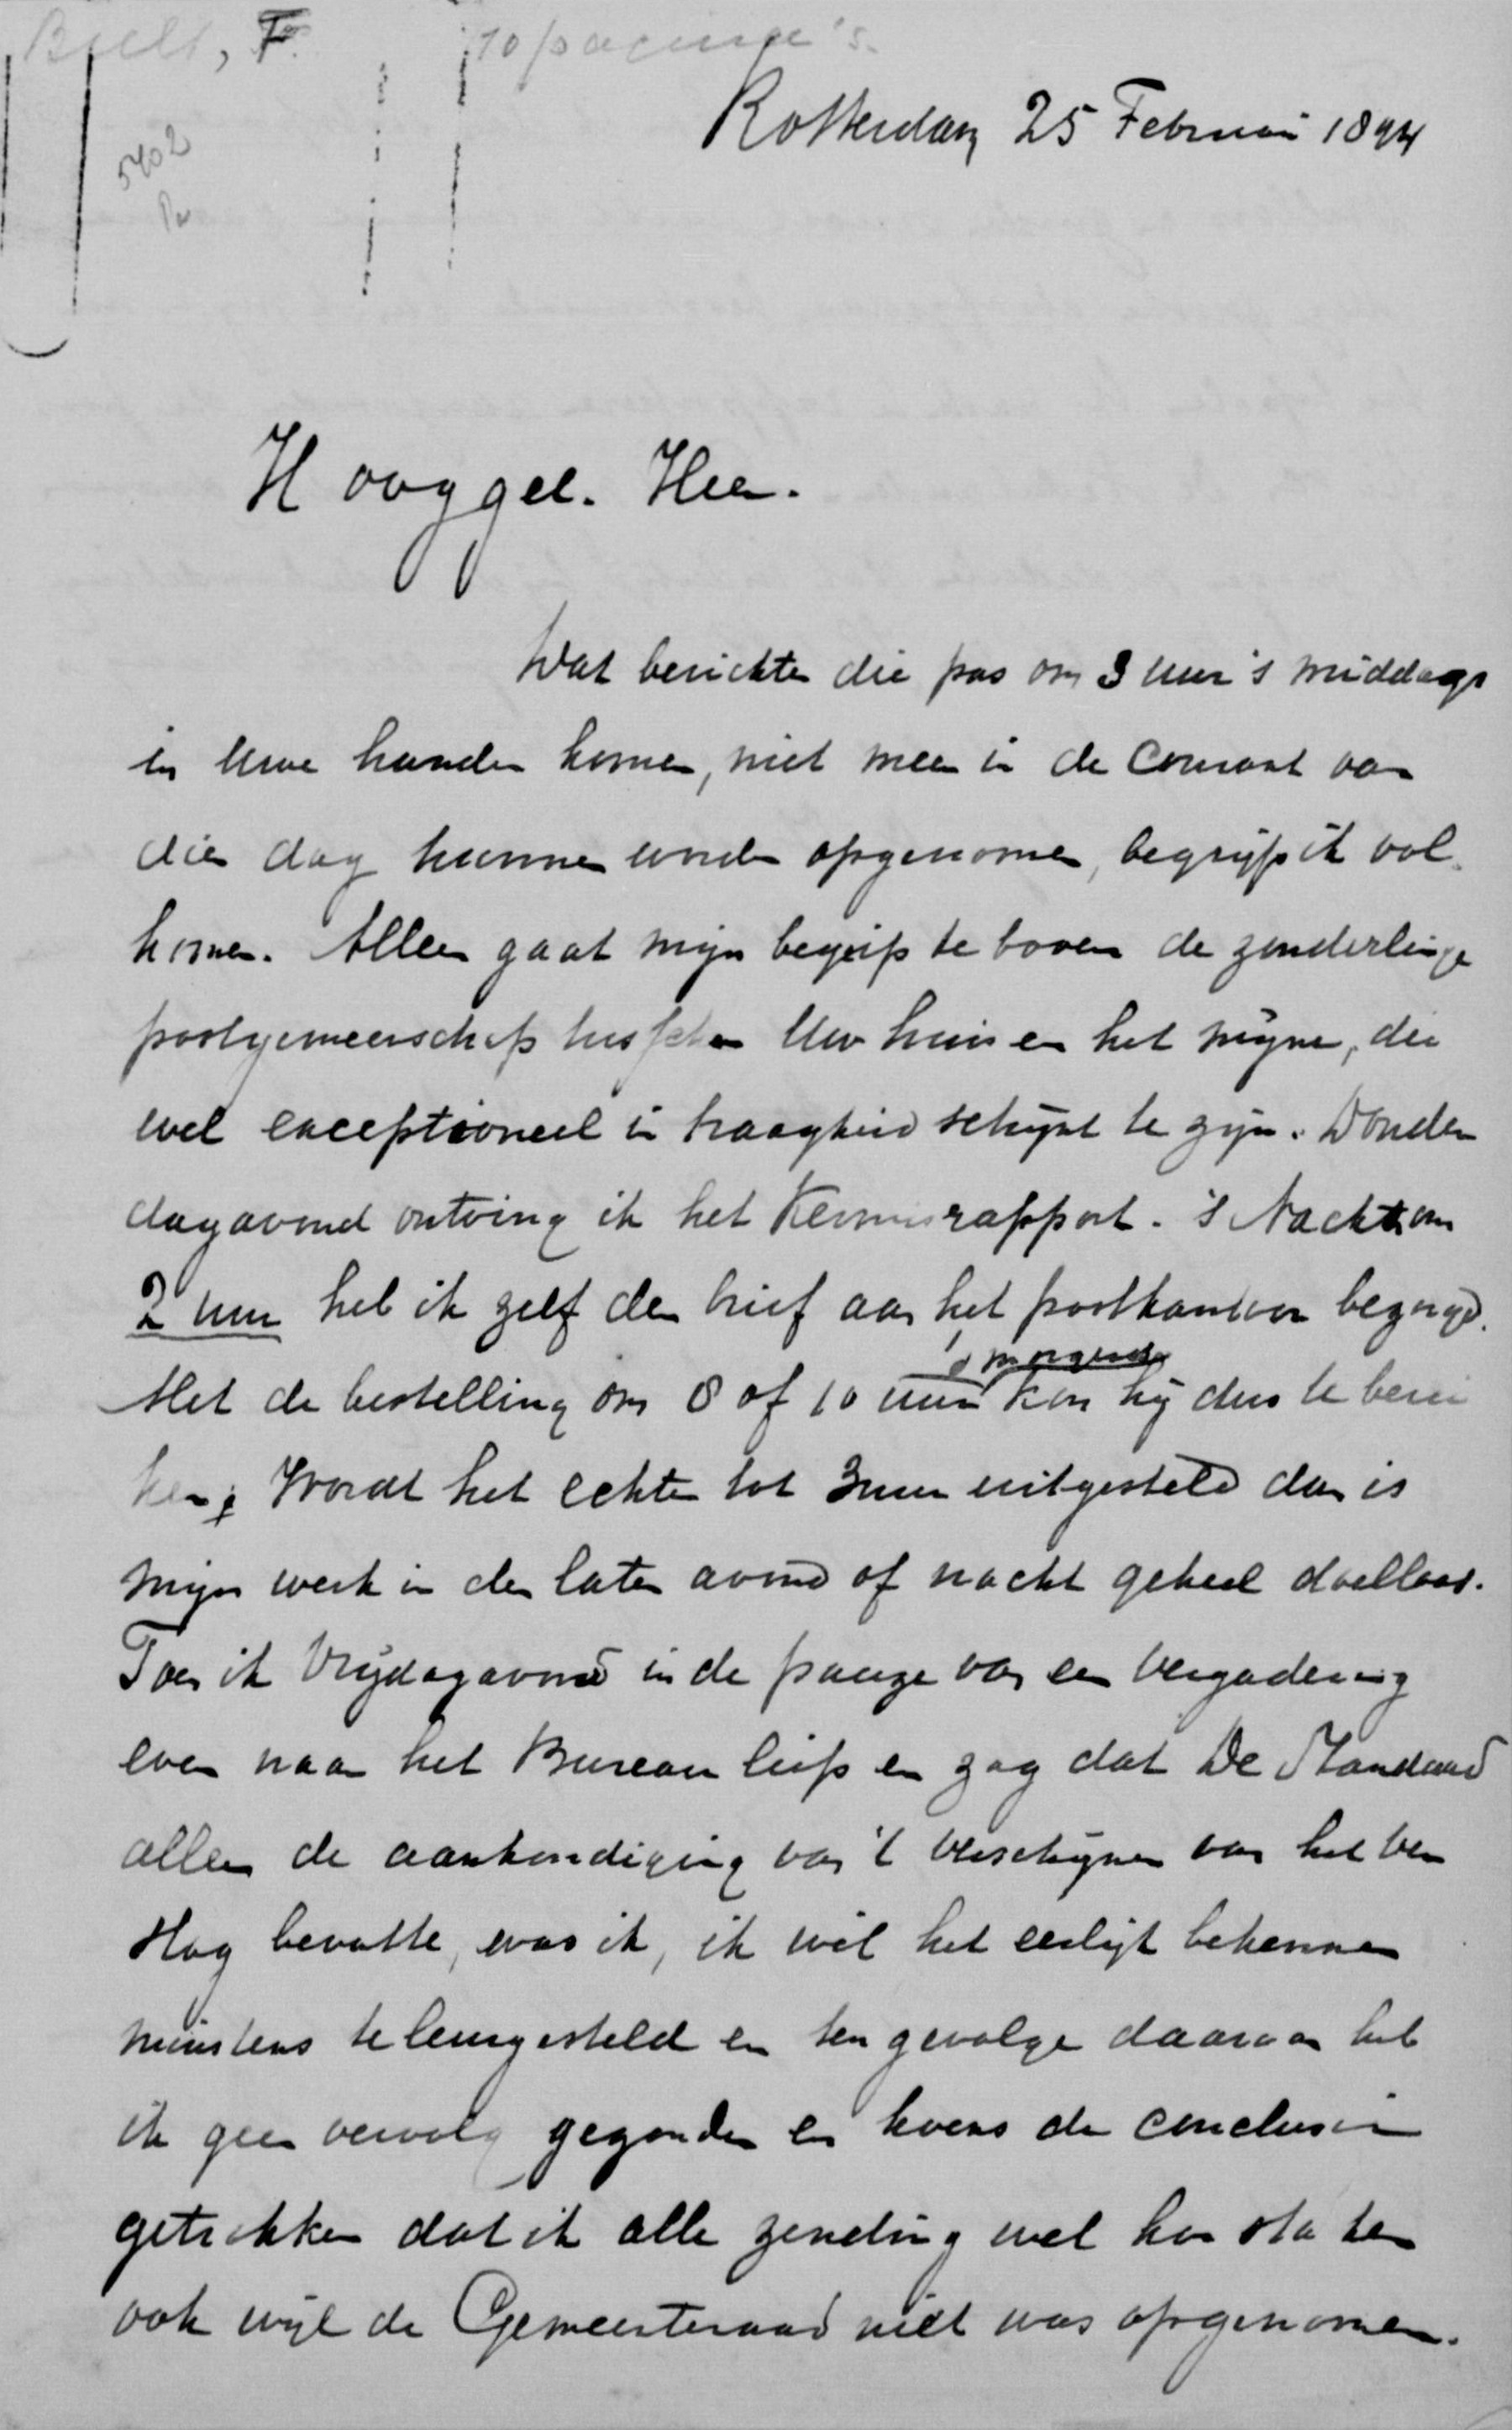 F. 10 pagina's.
5402
Rotterdam 25 Februari 1894
Hooggel. Heer.
Wat berichten die pas om 3 uur 's middags
in Uwe handen komen, niet meer in de Courant van
dien dag kunnen worden opgenomen, begrijp ik vol
komen. Alleen gaat mijn begrip te boven de zonderlinge
postgemeenschap tusschen Uw huis en het mijne, die
wel exceptioneel in traagheid schijnt te zijn. Donder
dagavond ontving ik het Kermisrapport. 's Nachts om
2 uur heb ik zelf den brief aan het postkantoor bezorgd.
Met de bestelling om 8 of 10 uur 's morgens kon hij dus te berei
ken. Wordt het echter tot 3 uur uitgesteld dan is
mijn werk in den laten avond of nacht geheel doelloos.
Toen ik Vrijdagavond in de pauze van een vergadering
even naar het Bureau liep en zag dat De Standaard
alleen de aankondiging van 't verschijnen van het ver
slag bevatte, was ik, ik wil het eerlijk bekennen
minstens teleurgesteld en ten gevolge daarvan heb
ik geen vervolg gezonden en tevens de conclusie
getrokken dat ik alle zending wel kon staken
ook wijl de Gemeenteraad niet was opgenomen.